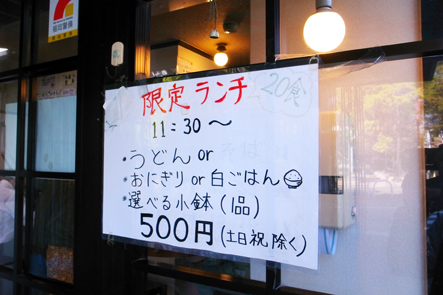 限定ランチ
20食
11:30〜
・うどん or そば
・おにぎり or 白ごはん
・選べる小鉢(1品)
500円(土日祝除く)